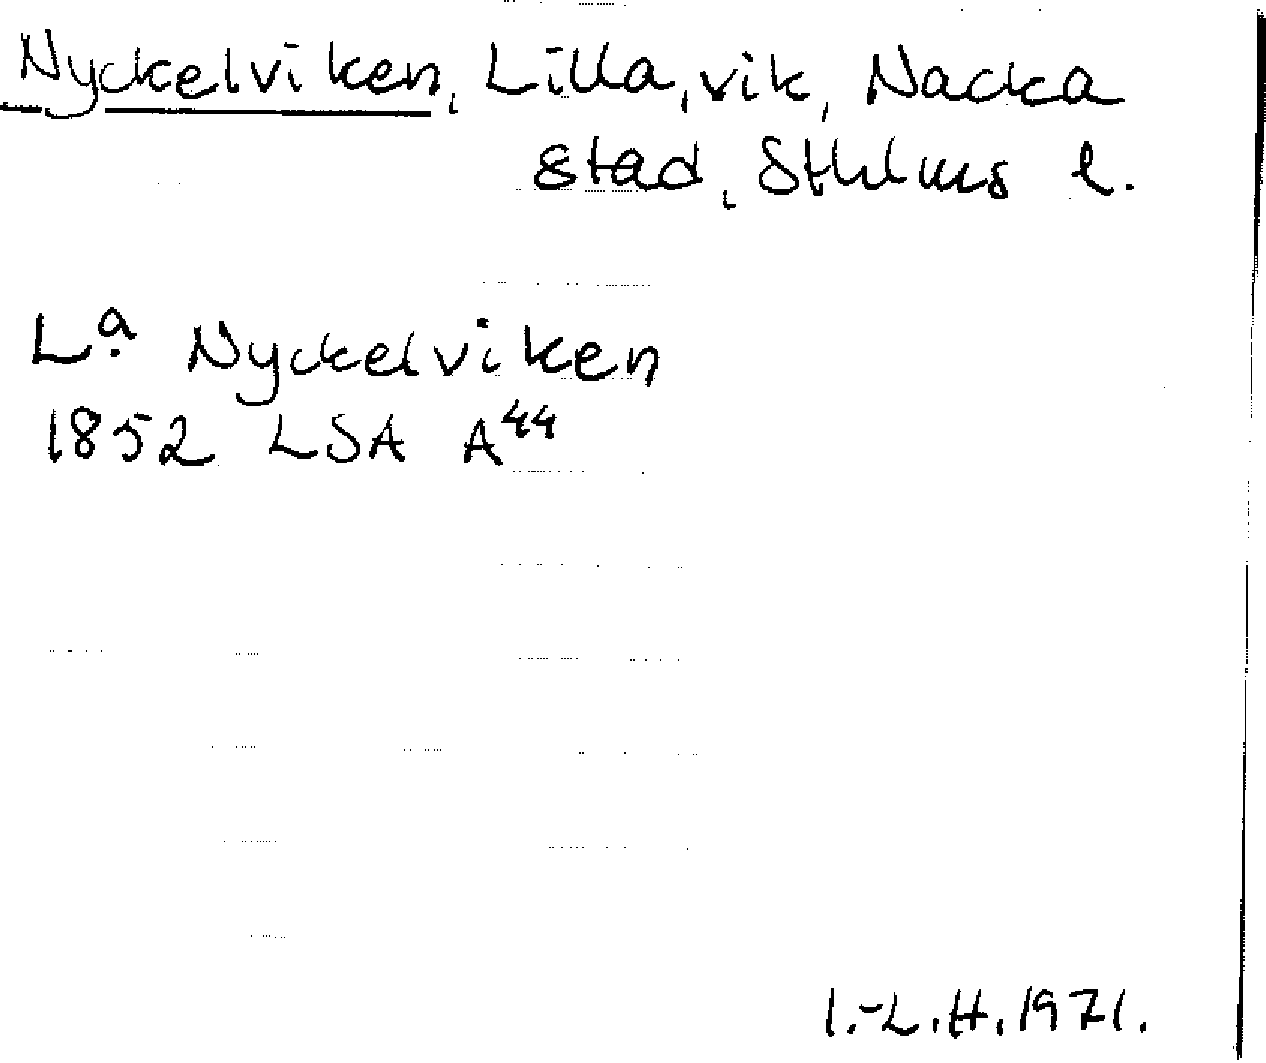 Nyckelviken, Lilla, vik, Nacka
stad, Sthlms l.
Lª. Nyckelviken
1852 LSA A⁴⁴
I.-L.H. 1971.